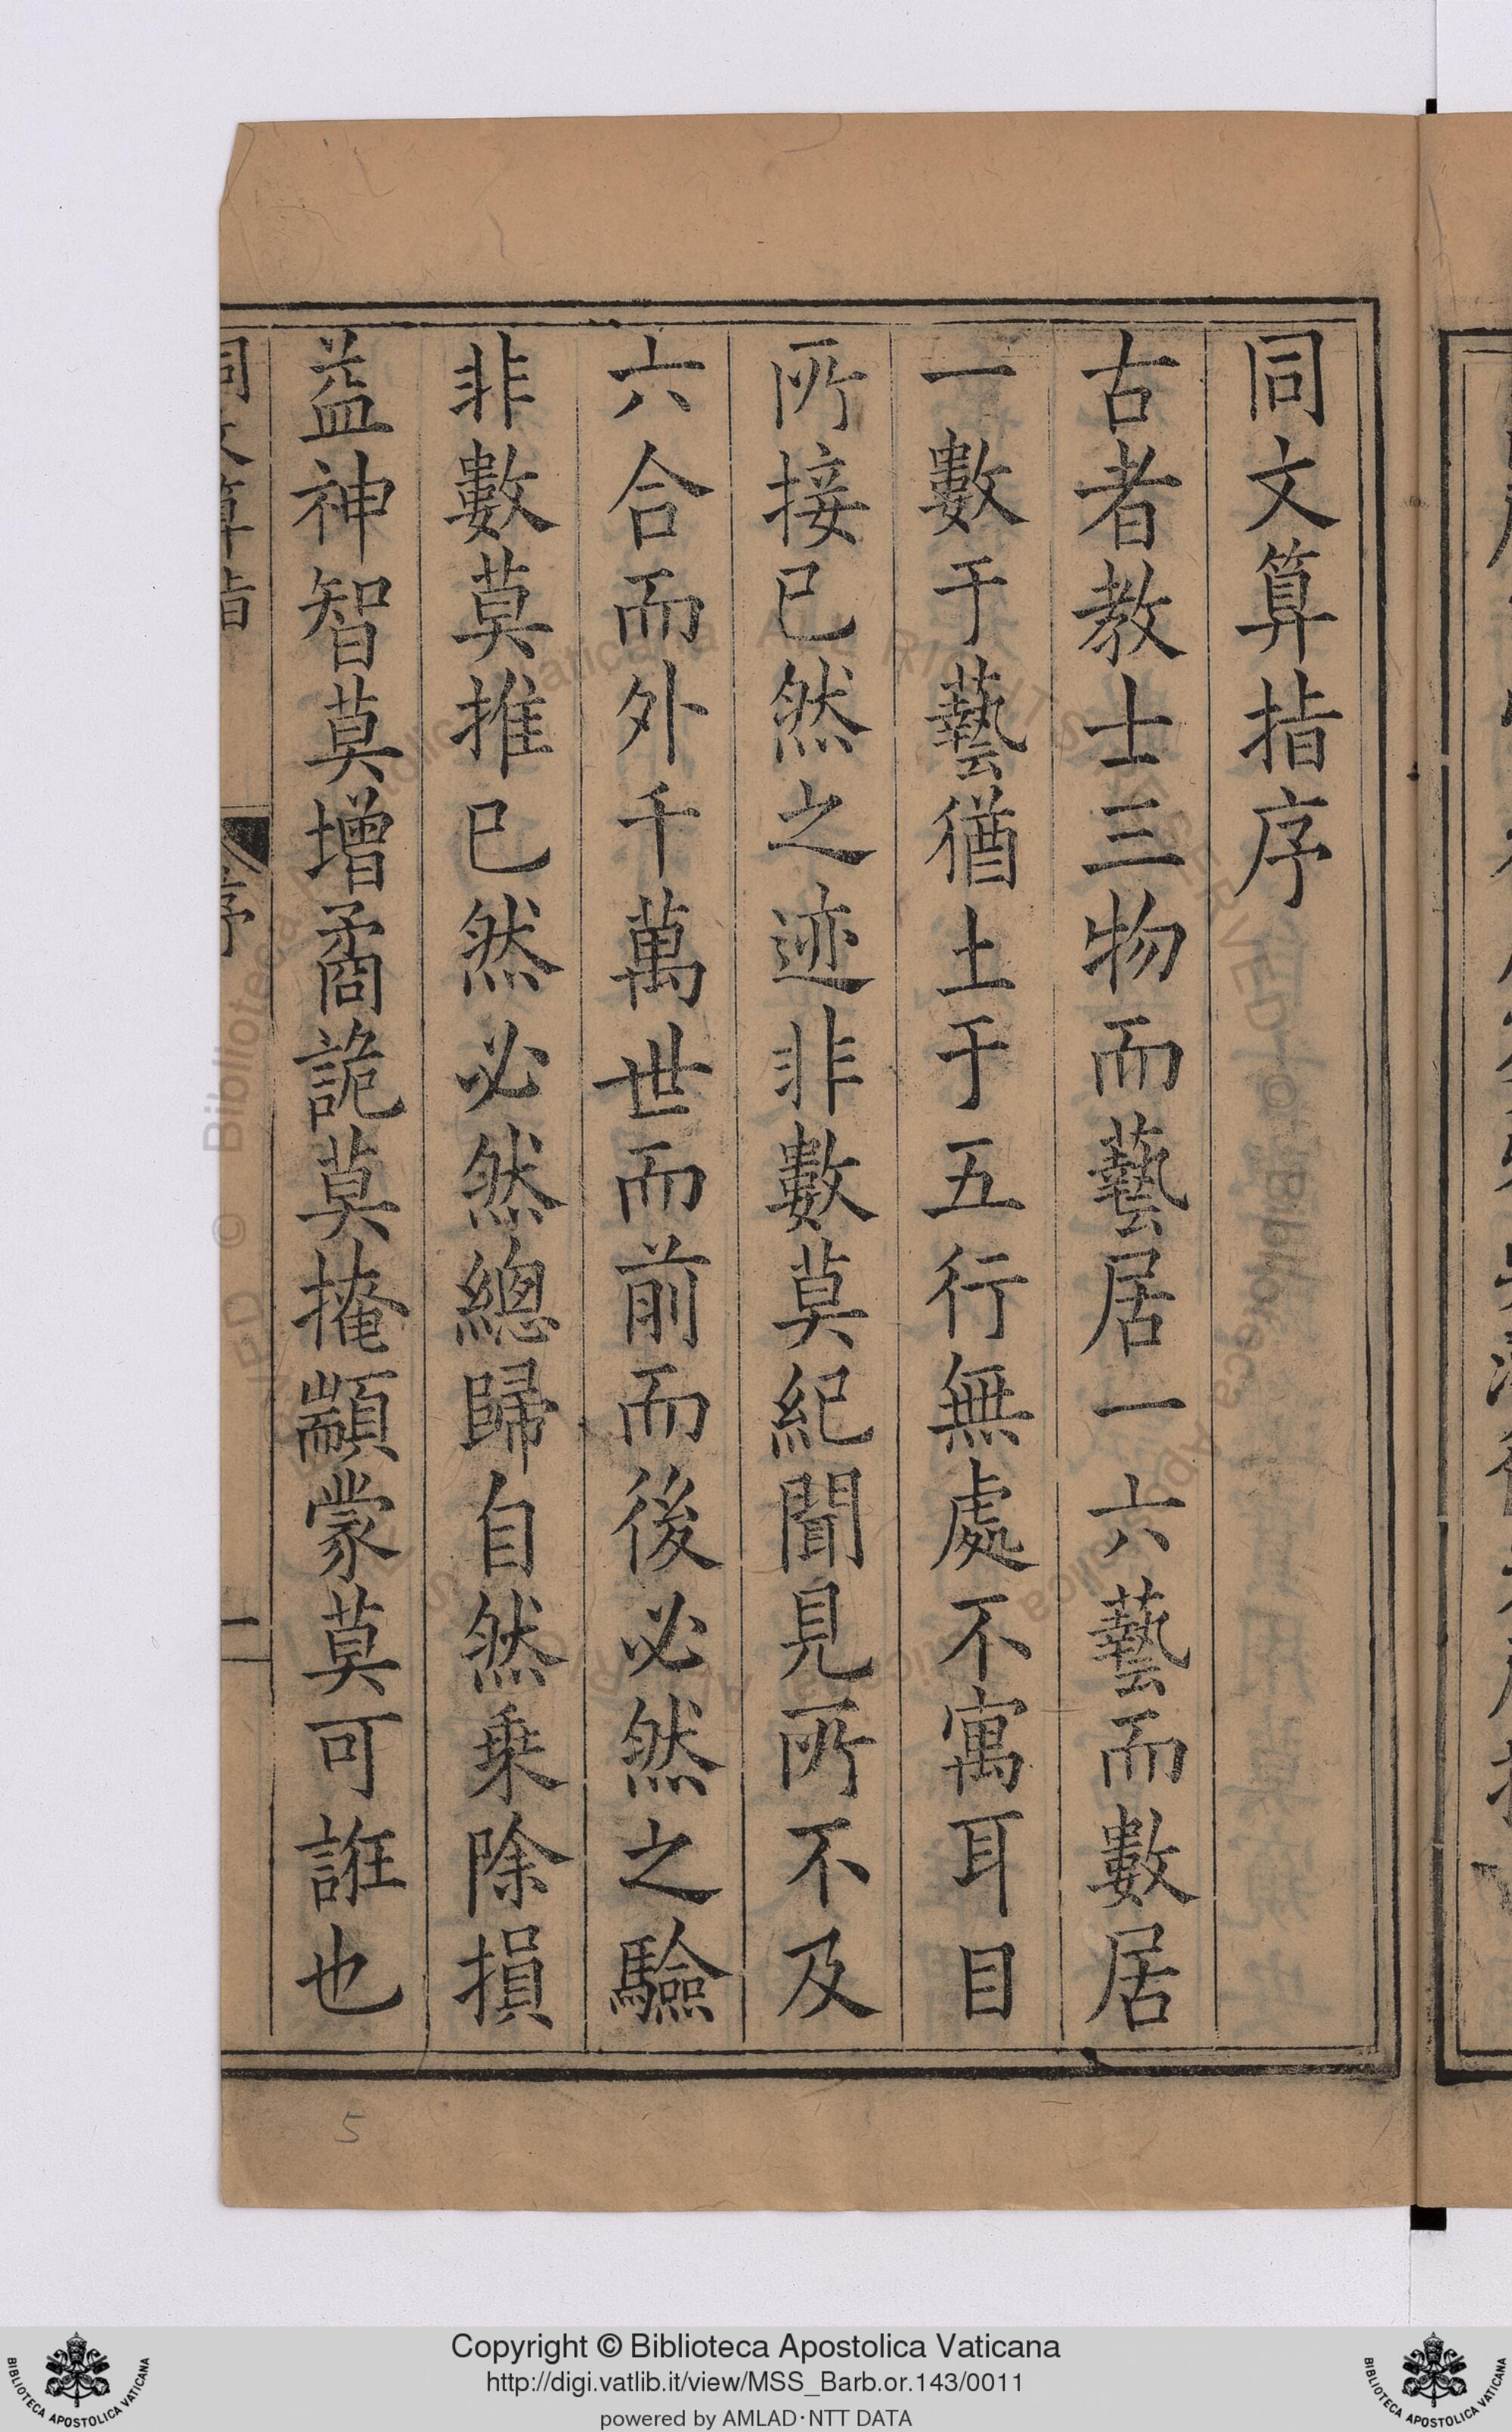 同文算指序
古者教士三物而藝居一六藝而數居
一數于藝猶土于五行無處不寓耳目
所接已然之迹非數莫紀聞見所不及
六合而外千萬世而前而後必然之驗
非數莫推已然必然總歸自然乗除損
益神智莫增矞詭莫掩顓蒙莫可誑也
同文算指
序
一
5
Copyright © Biblioteca Apostolica Vaticana
http://digi.vatlib.it/view/MSS_Barb.or.143/0011
powered by AMLAD·NTT DATA
BIBLIOTECA APOSTOLICA VATICANA
BIBLIOTECA APOSTOLICA VATICANA